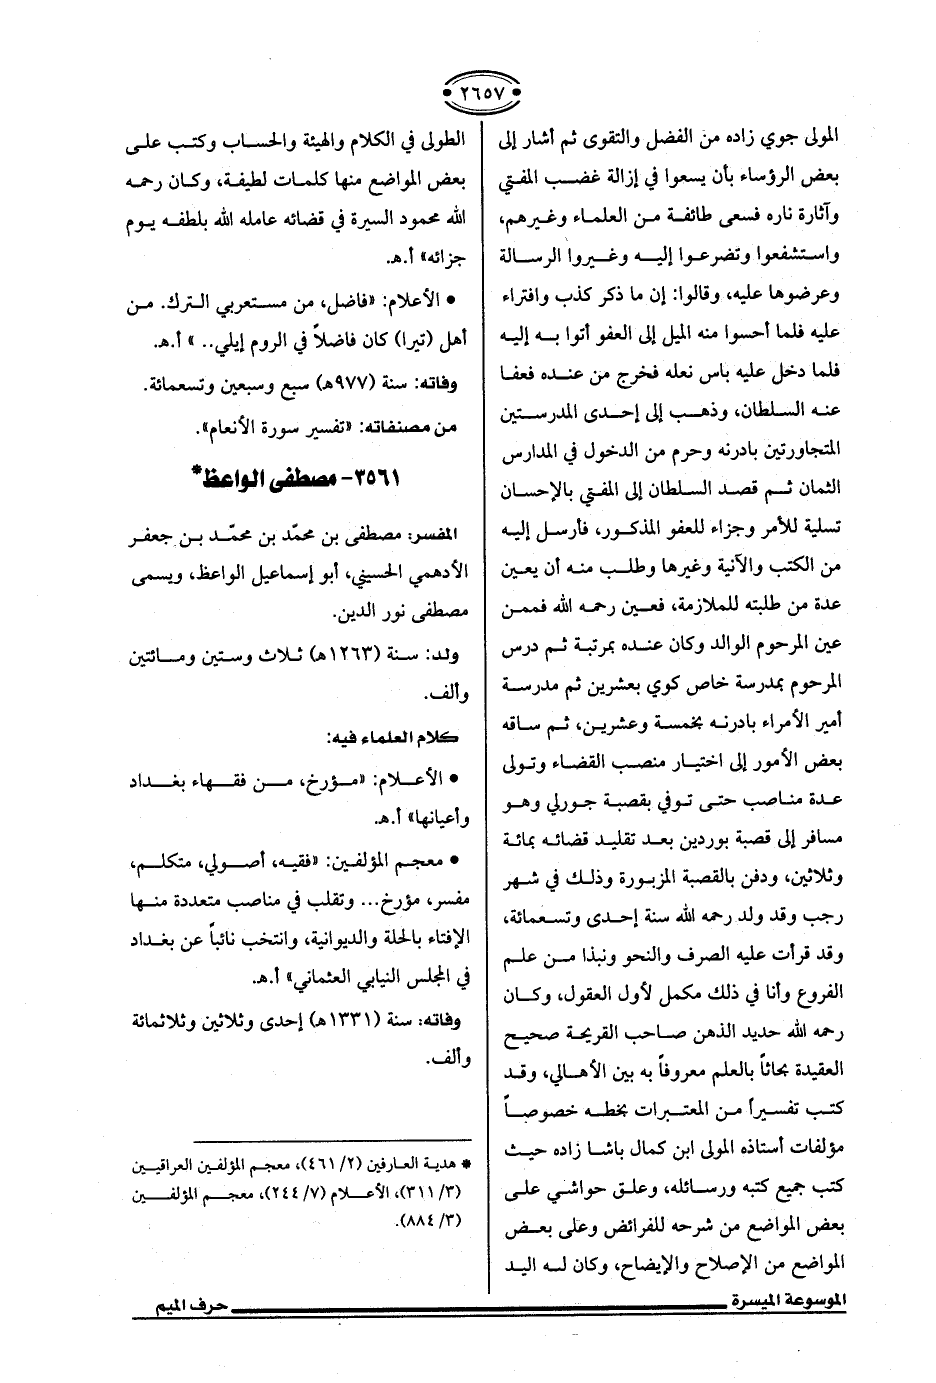 ٢٦٥٧
المولى جوي زاده من الفضل والتقوى ثم أشار إلى
بعض الرؤساء بأن يسعوا في إزالة غضب المفتي
وآثارة ناره فسعى طائفة من العلماء وغيرهم،
واستشفعوا وتضرعوا إليه وغيروا الرسالة
وعرضوها عليه، وقالوا: إن ما ذكر كذب وافتراء
عليه فلما أحسوا منه الميل إلى العفو أتوا به إليه
فلما دخل عليه باس نعله فخرج من عنده فعفا
عنه السلطان، وذهب إلى إحدى المدرستين
المتجاورتين بادرنه وحرم من الدخول في المدارس
الثمان ثم قصد السلطان إلى المفتي بالإحسان
تسلية للأمر وجزاء للعفو المذكور، فأرسل إليه
من الكتب والآنية وغيرها وطلب منه أن يعين
عدة من طلبته للملازمة، فعين رحمه الله فممن
عين المرحوم الوالد وكان عنده بمرتبة ثم درس
المرحوم بمدرسة خاص كوي بعشرين ثم مدرسة
أمير الأمراء بادرنه بخمسة وعشرين، ثم ساقه
بعض الأمور إلى اختيار منصب القضاء وتولى
عدة مناصب حتى توفي بقصبة جورلي وهو
مسافر إلى قصبة بوردين بعد تقليد قضائه بمائة
وثلاثين، ودفن بالقصبة المزبورة وذلك في شهر
رجب وقد ولد رحمه الله سنة إحدى وتسعمائة،
وقد قرأت عليه الصرف والنحو ونبذا من علم
الفروع وأنا في ذلك مكمل لأول العقول، وكان
رحمه الله حديد الذهن صاحب القريحة صحيح
العقيدة بحاثاً بالعلم معروفاً به بين الأهالي، وقد
كتب تفسيراً من المعتبرات بخطه خصوصاً
مؤلفات أستاذه المولى ابن كمال باشا زاده حيث
كتب جميع كتبه ورسائله، وعلق حواشي على
بعض المواضع من شرحه للفرائض وعلى بعض
المواضع من الإصلاح والإيضاح، وكان له اليد
الطولى في الكلام والهيئة والحساب وكتب على
بعض المواضع منها كلمات لطيفة، وكان رحمه
الله محمود السيرة في قضائه عامله الله بلطفه يوم
جزائه» أ.هـ.
• الأعلام: «فاضل، من مستعربي الترك. من
أهل (تيرا) كان فاضلاً في الروم إيلي.. » أ.هـ.
وفاته: سنة (٩٧٧هـ) سبع وسبعين وتسعمائة.
من مصنفاته: «تفسير سورة الأنعام».
٣٥٦١- مصطفى الواعظ*
المفسر: مصطفى بن محمّد بن محمّد بن جعفر
الأدهمي الحسيني، أبو إسماعيل الواعظ، ويسمى
مصطفى نور الدين.
ولد: سنة (١٢٦٣هـ) ثلاث وستين ومائتين
وألف.
كلام العلماء فيه:
• الأعلام: «مؤرخ، من فقهاء بغداد
وأعيانها» أ.هـ.
• معجم المؤلفين: «فقيه، أصولي، متكلم،
مفسر، مؤرخ... وتقلب في مناصب متعددة منها
الإفتاء بالحلة والديوانية، وانتخب نائباً عن بغداد
في المجلس النيابي العثماني» أ.هـ.
وفاته: سنة (١٣٣١هـ) إحدى وثلاثين وثلاثمائة
وألف.
* هدية العارفين (٢/ ٤٦١)، معجم المؤلفين العراقيين
(٣/ ٣١١)، الأعلام (٧/ ٢٤٤)، معجم المؤلفين
(٣/ ٨٨٤).
الموسوعة الميسرة
حرف الميم